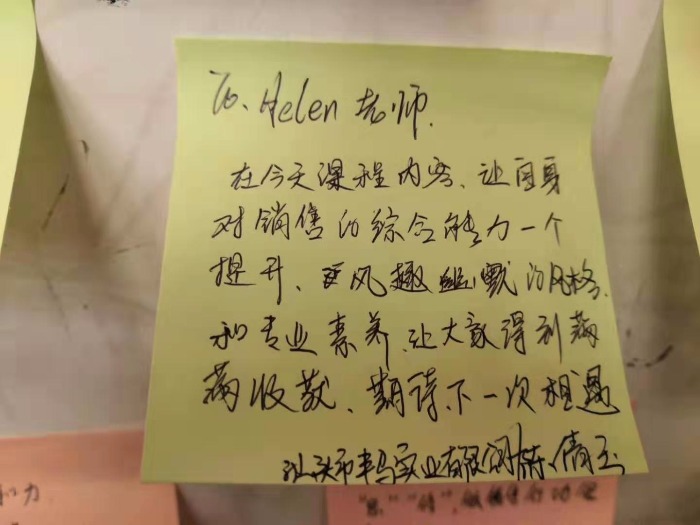 To. Helen 老师.
在今天课程内容、让自身
对销售的综合能力一个
提升、风趣幽默的风格.
和专业素养.让大家得到满
满收获、期待下一次相遇
汕头市丰马实业有限公司陈倩玉
和力